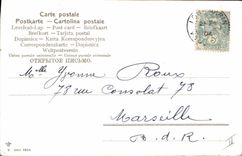 Carte postale
Postkarte - Cartolina postale
Levelező-Lap - Post card - Briefkaart
Brefkort - Tarjeta postal
Dopisnice - Karta Korespondencyjna
Correspondenzkarte - Dopisnica
Weltpostverein - Union postale universelle
ОТКРЫТОЕ ПИСЬМО.
Melle Yvonne Roux
78 rue Consolat 78
Marseille
B. d. R.